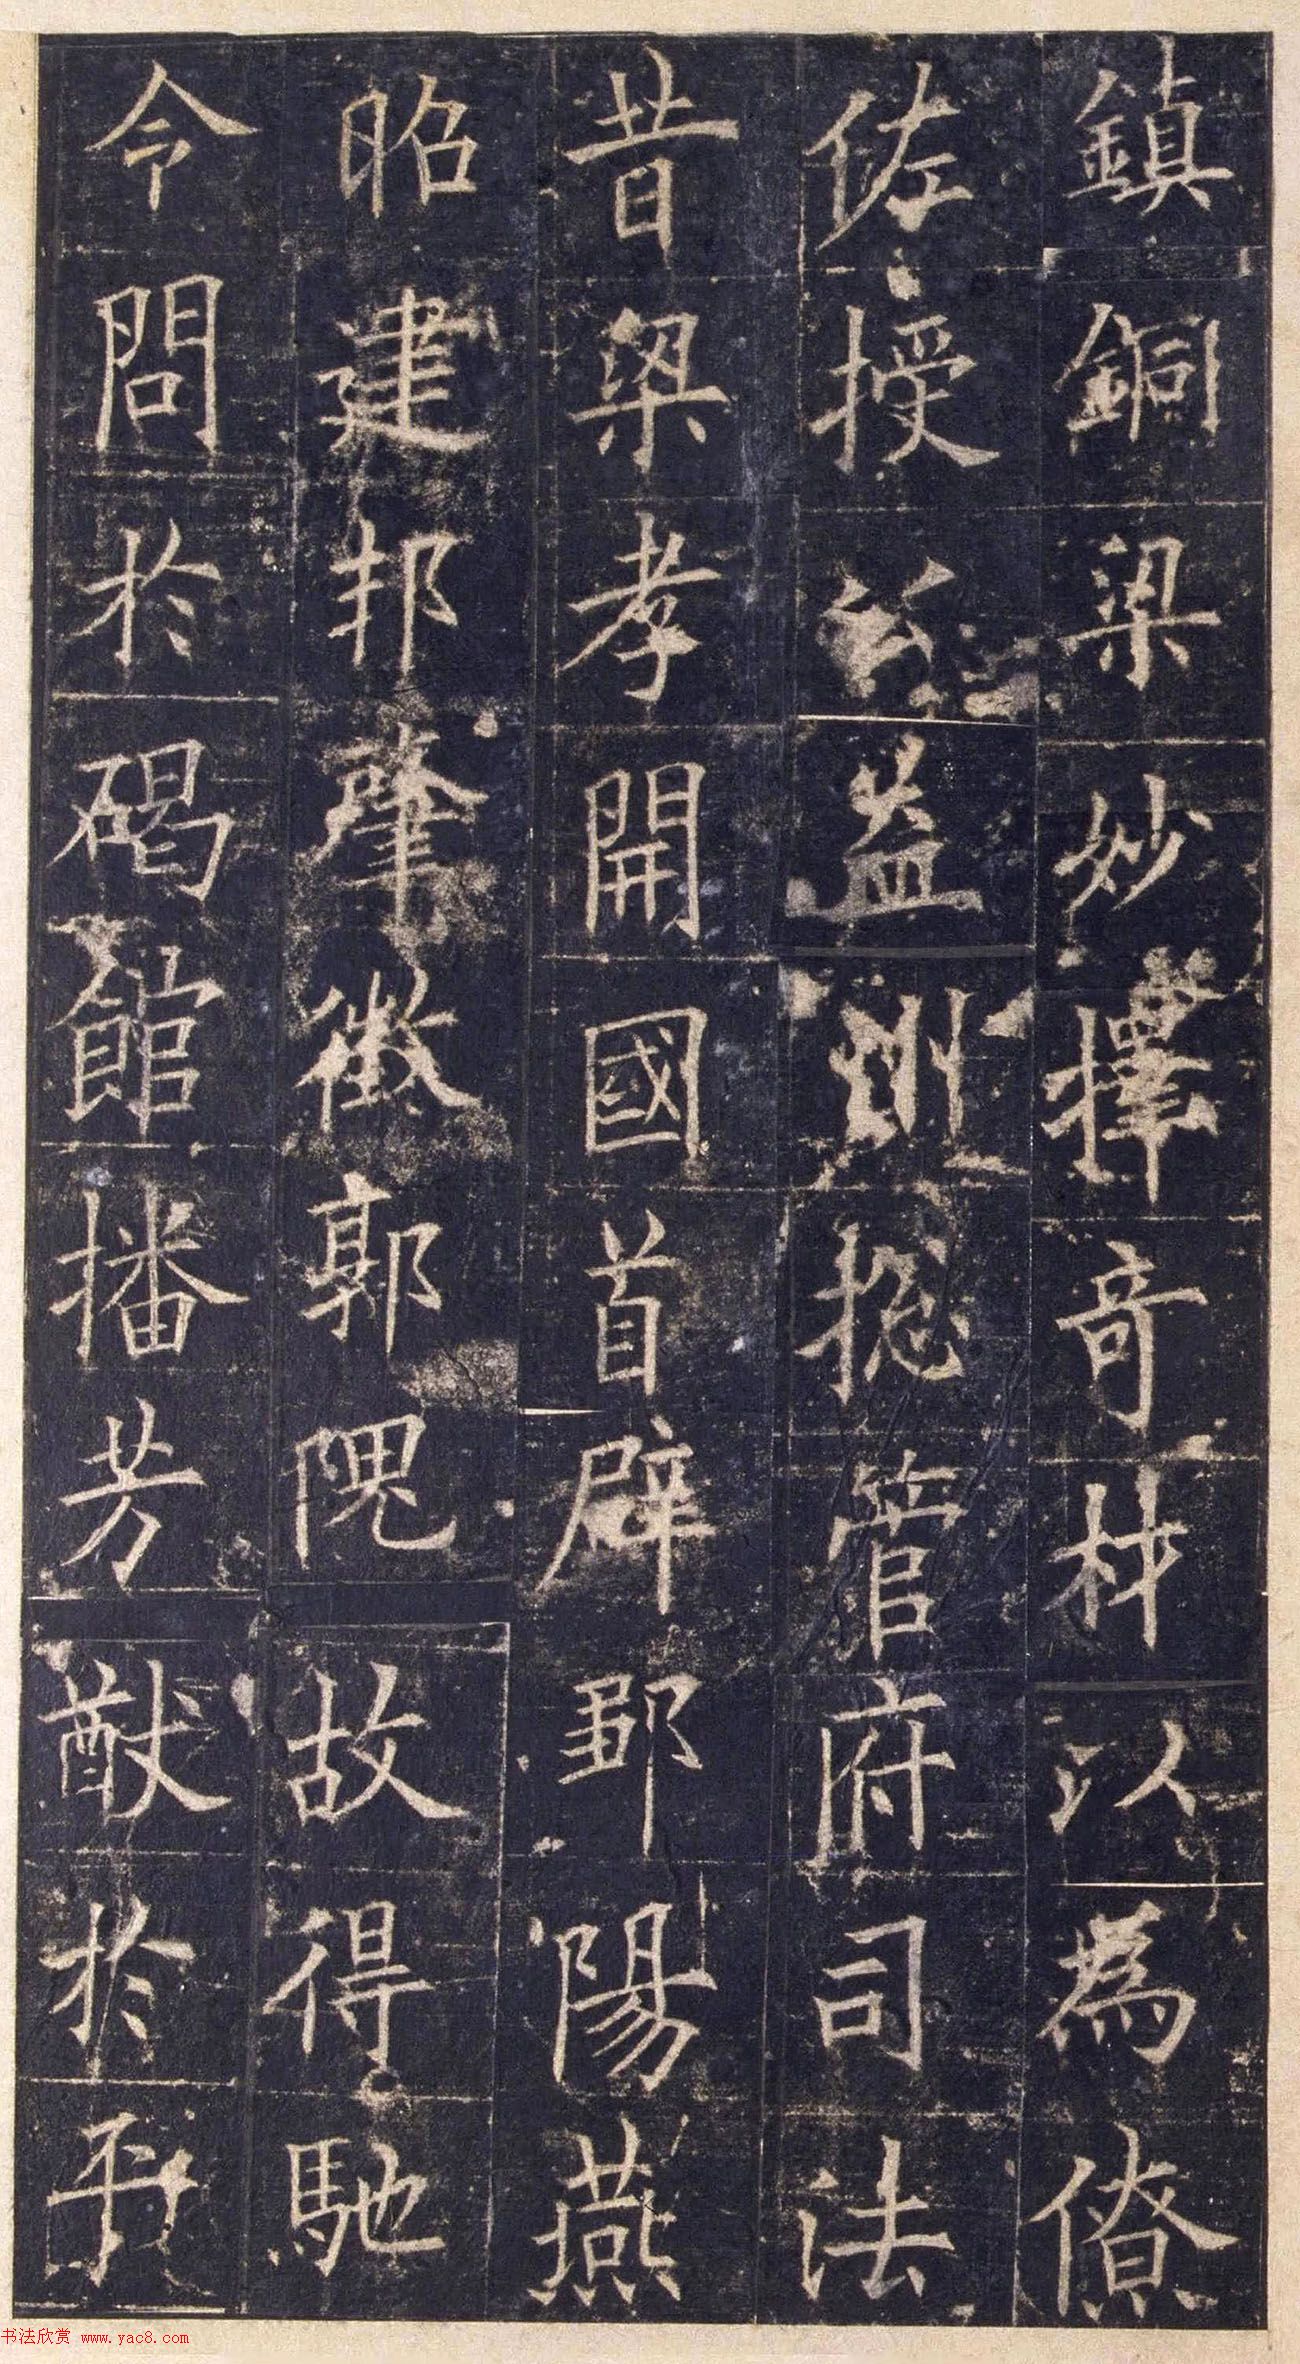 鎮銅梁妙擇奇材以為僚
佐授公益州揔管府司法
昔梁孝開國首辟鄒陽燕
昭建邦肇徵郭隗故得馳
令問於碣館播芳猷於平
书法欣赏 www.yac8.com